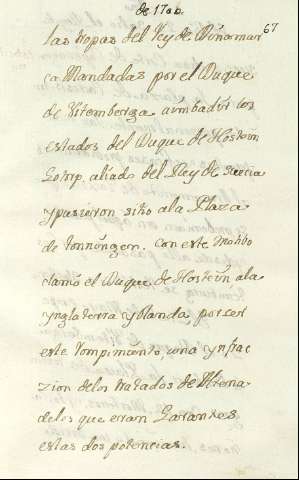 de 1700.
67
las tropas del Rey de Dinamar
ca Mandadas por el Duque
de Vitemberga aimbadir los
estados del Duque de Hostein
Gotorp. aliado del Rey de suecia
ypusieron sitio ala Plaza
de tonningen. Con este Motibo
clamó el Duque de Hostein ala
ynglaterra yolanda por ser
este Rompimiento, una ynfrac
zion delos tratados de Altena
delos que erran Garantes
estas dos potencias.